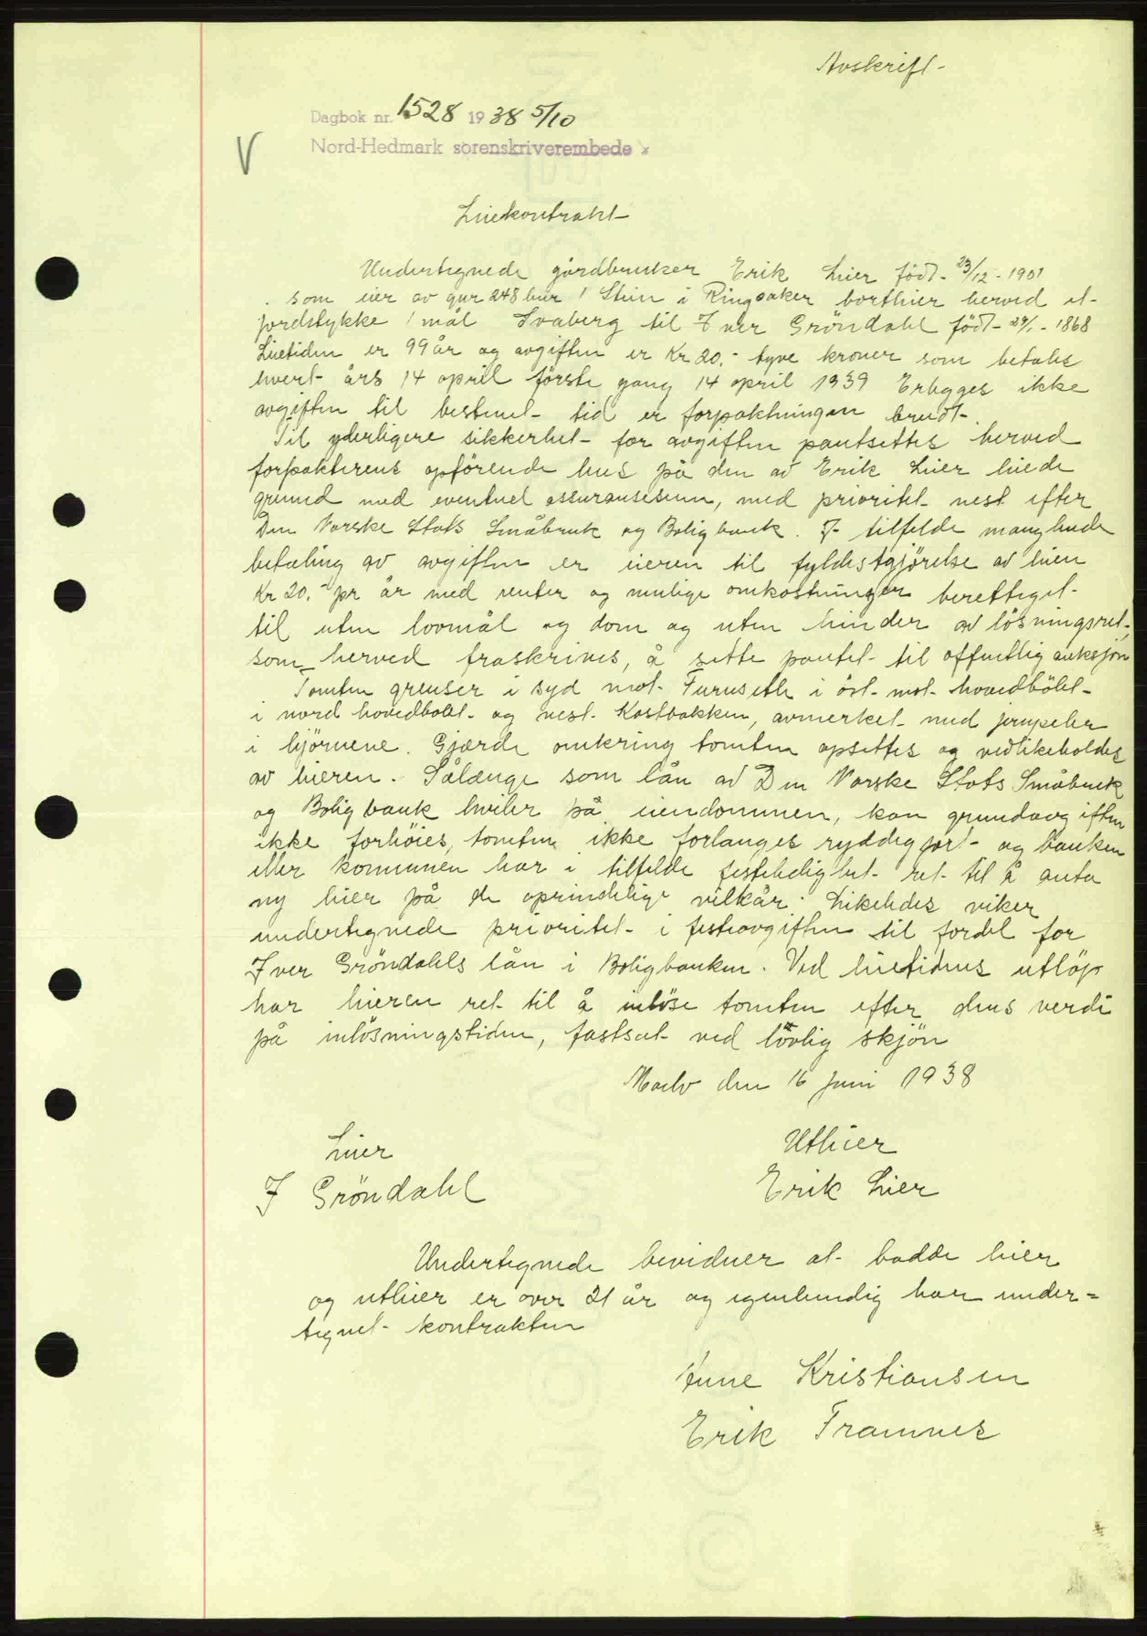 Avskrift-
Dagbok nr. 1528 1938 5/10
Nord-Hedmark sorenskriverembede
V
Leiekontrakt
Undertegnede gårdbruker Erik Lier född 23/12-1901
som eier av gnr 248 bnr 1 Stein i Ringsaker bortleier herved et
jordstykke 1 mål Svaberg til Iver Gröndahl född 29/1-1868
Leietiden er 99 år og avgiften er Kr 20.- tyve kroner som betales
hvert års 14 april förste gang 14 april 1939 Erlegges ikke
avgiften til bestemt tid er forpaktningen brudt.
Til yderligere sikkerhet for avgiften pantsettes herved
forpakterens opförende hus på den av Erik Lier leiede
grund med eventuel assuransesum, med prioritet nest efter
Den Norske Stats Småbruk og Boligbank. I tilfelde manglende
betaling av avgiften er eieren til fyldestgjörelse av leien
Kr 20.- pr år med renter og mulige omkostninger berettiget
til uten lovmål og dom og uten hinder av lösningsret,
som herved fraskrives, å sette pantet til offentlig auksjon
Tomten grenser i syd mot Furuseth i öst mot hovedbölet
i nord hovedbölet og vest Kostbakken, avmerket med jernpeler
i hjörnene. Gjærde omkring tomten opsettes og vedlikeholdes
av leieren. Sålænge som lån av Den Norske Stats Småbruk
og Boligbank hviler på eiendommen, kan grundavgiften
ikke forhöies, tomten ikke forlanges ryddiggjort og banken
eller kommunen har i tilfelde festeledighet ret til å anta
ny leier på de oprindelige vilkår. Likeledes viker
undertegnede prioritet i festeavgiften til fordel for
Iver Gröndahls lån i Boligbanken. Ved leietidens utlöp
har leieren ret til å inlöse tomten efter dens verdi
på inlösningstiden, fastsat ved lovlig skjön
Moelv den 16 juni 1938
Leier
Utleier
J Gröndahl
Erik Lier
Undertegnede bevidner at badde leier
og utleier er over 21 år og egenhendig har under=
tegnet kontrakten
Kristiansen
Erik Framnes